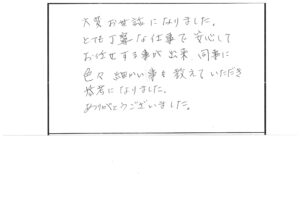 大変お世話になりました。
とても丁寧な仕事で安心して
お任せする事が出来 同時に
色々細かい事も教えていただき
参考になりました。
ありがとうございました。